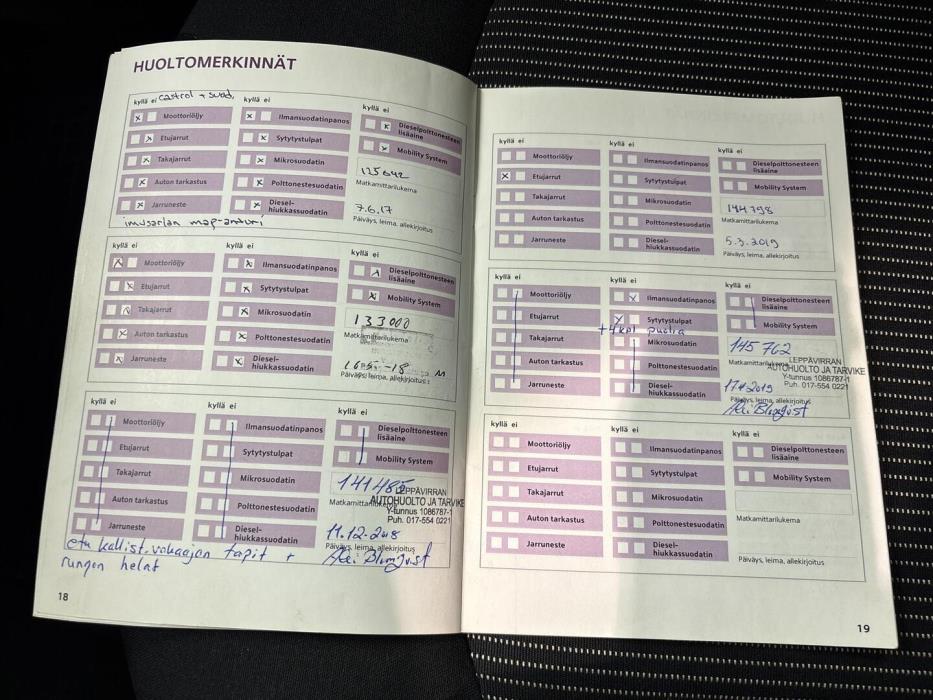 HUOLTOMERKINNÄT
kyllä ei castrol + suod.
Moottoriöljy
Etujarrut
Takajarrut
Auton tarkastus
Jarruneste
kyllä ei
Ilmansuodatinpanos
Sytytystulpat
Mikrosuodatin
Polttonestesuodatin
Diesel-
hiukkassuodatin
kyllä ei
Dieselpolttonesteen
lisäaine
Mobility System
125642
Matkamittarilukema
7.6.17
Päiväys, leima, allekirjoitus
imusarjan map-anturi
kyllä ei
Moottoriöljy
Etujarrut
Takajarrut
Auton tarkastus
Jarruneste
kyllä ei
Ilmansuodatinpanos
Sytytystulpat
Mikrosuodatin
Polttonestesuodatin
Diesel-
hiukkassuodatin
kyllä ei
Dieselpolttonesteen
lisäaine
Mobility System
133000
Matkamittarilukema
16.5.-18
Päiväys, leima, allekirjoitus
kyllä ei
Moottoriöljy
Etujarrut
Takajarrut
Auton tarkastus
Jarruneste
kyllä ei
Ilmansuodatinpanos
Sytytystulpat
Mikrosuodatin
Polttonestesuodatin
Diesel-
hiukkassuodatin
kyllä ei
Dieselpolttonesteen
lisäaine
Mobility System
141485
LEPPÄVIRRAN
Matkamittarilukema
AUTOHUOLTO JA TARVIKE
Y-tunnus 1086787-1
Puh. 017-554 0221
11.12.2018
Päiväys, leima, allekirjoitus
etu kallist.vakaajan tapit +
rungon helat
18
kyllä ei
Moottoriöljy
Etujarrut
Takajarrut
Auton tarkastus
Jarruneste
kyllä ei
Ilmansuodatinpanos
Sytytystulpat
Mikrosuodatin
Polttonestesuodatin
Diesel-
hiukkassuodatin
kyllä ei
Dieselpolttonesteen
lisäaine
Mobility System
144798
Matkamittarilukema
5.3.2019
Päiväys, leima, allekirjoitus
kyllä ei
Moottoriöljy
Etujarrut
Takajarrut
Auton tarkastus
Jarruneste
kyllä ei
Ilmansuodatinpanos
Sytytystulpat
+4kpl puolia
Mikrosuodatin
Polttonestesuodatin
Diesel-
hiukkassuodatin
kyllä ei
Dieselpolttonesteen
lisäaine
Mobility System
145762
LEPPÄVIRRAN
Matkamittarilukema
AUTOHUOLTO JA TARVIKE
Y-tunnus 1086787-1
Puh. 017-554 0221
Päiväys, leima, allekirjoitus
kyllä ei
Moottoriöljy
Etujarrut
Takajarrut
Auton tarkastus
Jarruneste
kyllä ei
Ilmansuodatinpanos
Sytytystulpat
Mikrosuodatin
Polttonestesuodatin
Diesel-
hiukkassuodatin
kyllä ei
Dieselpolttonesteen
lisäaine
Mobility System
Matkamittarilukema
Päiväys, leima, allekirjoitus
19